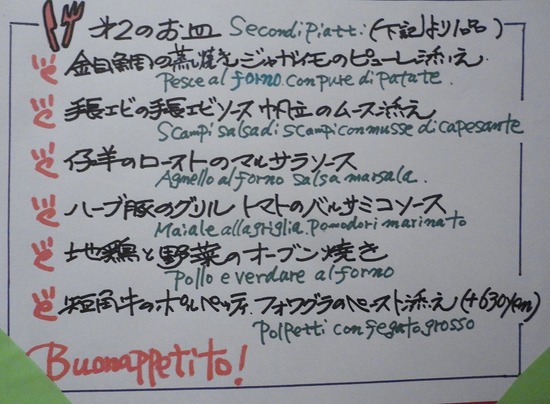 才2のお皿 Secondi piatti (下記より1品)
金目鯛の蒸し焼き ジャガイモのピューレ添え
Pesce al forno con pure di patate.
手長エビの手長エビソース 帆立のムース添え
Scampi salsa di scampi con musse di capesante
仔羊のローストのマルサラソース
Agnello al forno salsa marsala.
ハーブ豚のグリル トマトのバルサミコソース
Maiale alla griglia pomodori marinato
地鶏と野菜のオーブン焼き
Pollo e verdare al forno
短角牛のポルペッティ フォワグラのペースト添え (+630yen)
Polpetti con fegato grosso
Buonappetito!